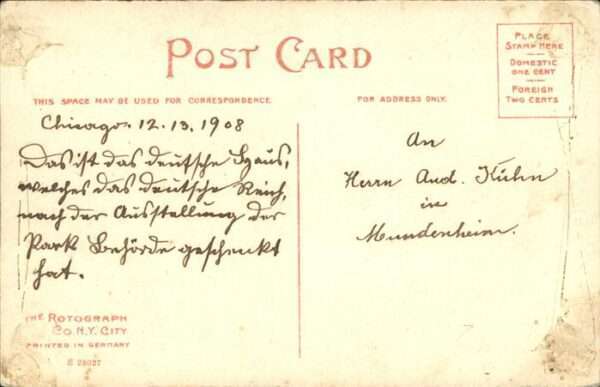 POST CARD
PLACE
STAMP HERE
DOMESTIC
ONE CENT
FOREIGN
TWO CENTS
THIS SPACE MAY BE USED FOR CORRESPONDENCE
FOR ADDRESS ONLY.
Chicago. 12.13.1908
Das ist das deutsche Haus,
welches das deutsche Reich,
nach der Ausstellung der
Park Behörde geschenkt
hat.
An
Herrn Aud. Kühn
in
Mundenheim.
THE ROTOGRAPH
CO. N.Y. CITY
PRINTED IN GERMANY